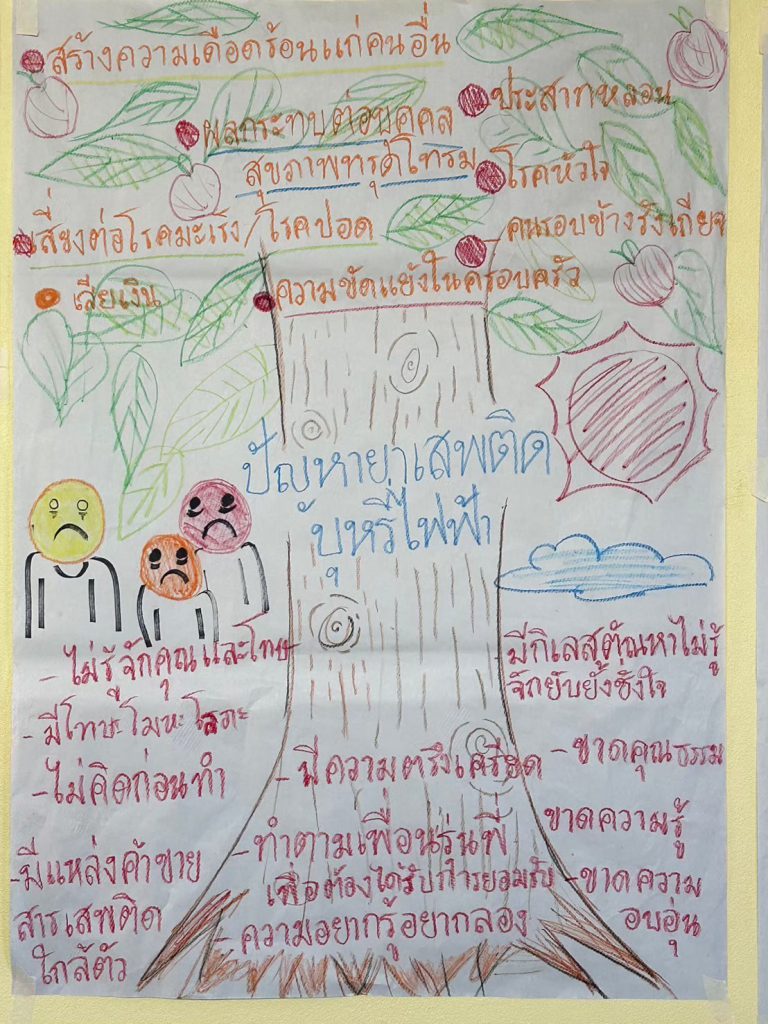 สร้างความเดือดร้อนแก่คนอื่น
ประสาทหลอน
ผลกระทบต่อบุคคล
สุขภาพทรุดโทรม
โรคหัวใจ
เสี่ยงต่อโรคมะเร็ง/โรคปอด
คนรอบข้างรังเกียจ
เสียเงิน
ความขัดแย้งในครอบครัว
ปัญหายาเสพติด
บุหรี่ไฟฟ้า
- ไม่รู้จักคุณและโทษ
- มีโทษะ โมหะ โลภะ
- ไม่คิดก่อนทำ
- มีแหล่งค้าขาย
สารเสพติด
ใกล้ตัว
- มีความตรึงเครียด
- ทำตามเพื่อนรุ่นพี่
เพื่อต้องได้รับการยอมรับ
- ความอยากรู้อยากลอง
มีกิเลสตัณหาไม่รู้
จักยับยั้งชั่งใจ
- ขาดคุณธรรม
ขาดความรู้
- ขาดความ
อบอุ่น